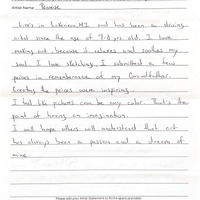 Artist Name: Denise
lives in                , MI and has been a
artist since the age of 7-8 yrs. old. I love
making art because it relaxes and soothes my
soul. I love sketching. I submitted a few
pieces in rememberance of my Grandfather.
Creating the pieces were inspiring.
I feel like pictures can be any color. That's the
point of having an imagination.
I will hope others will understand that art
has always been a passion and a dream of
mine.
Please add your Artist Statement to fit the space provided